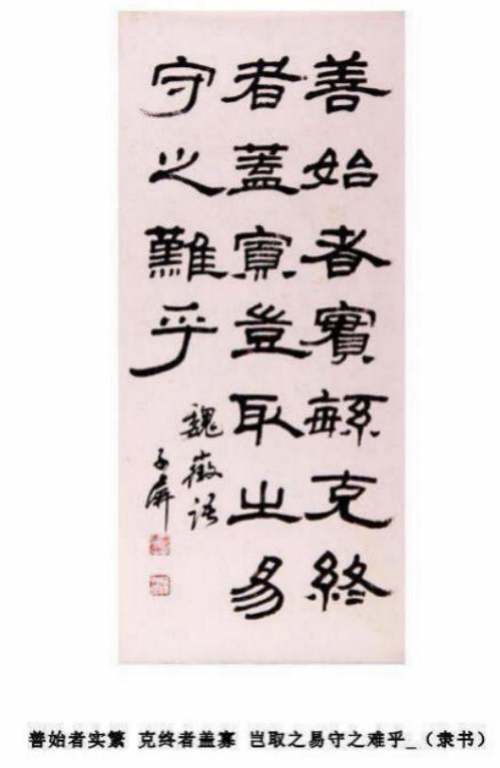 善始者實繇克終
者蓋寡豈取之易
守之難乎
魏徵語
子屏
善始者实繁 克终者盖寡 岂取之易守之难乎_（隶书）